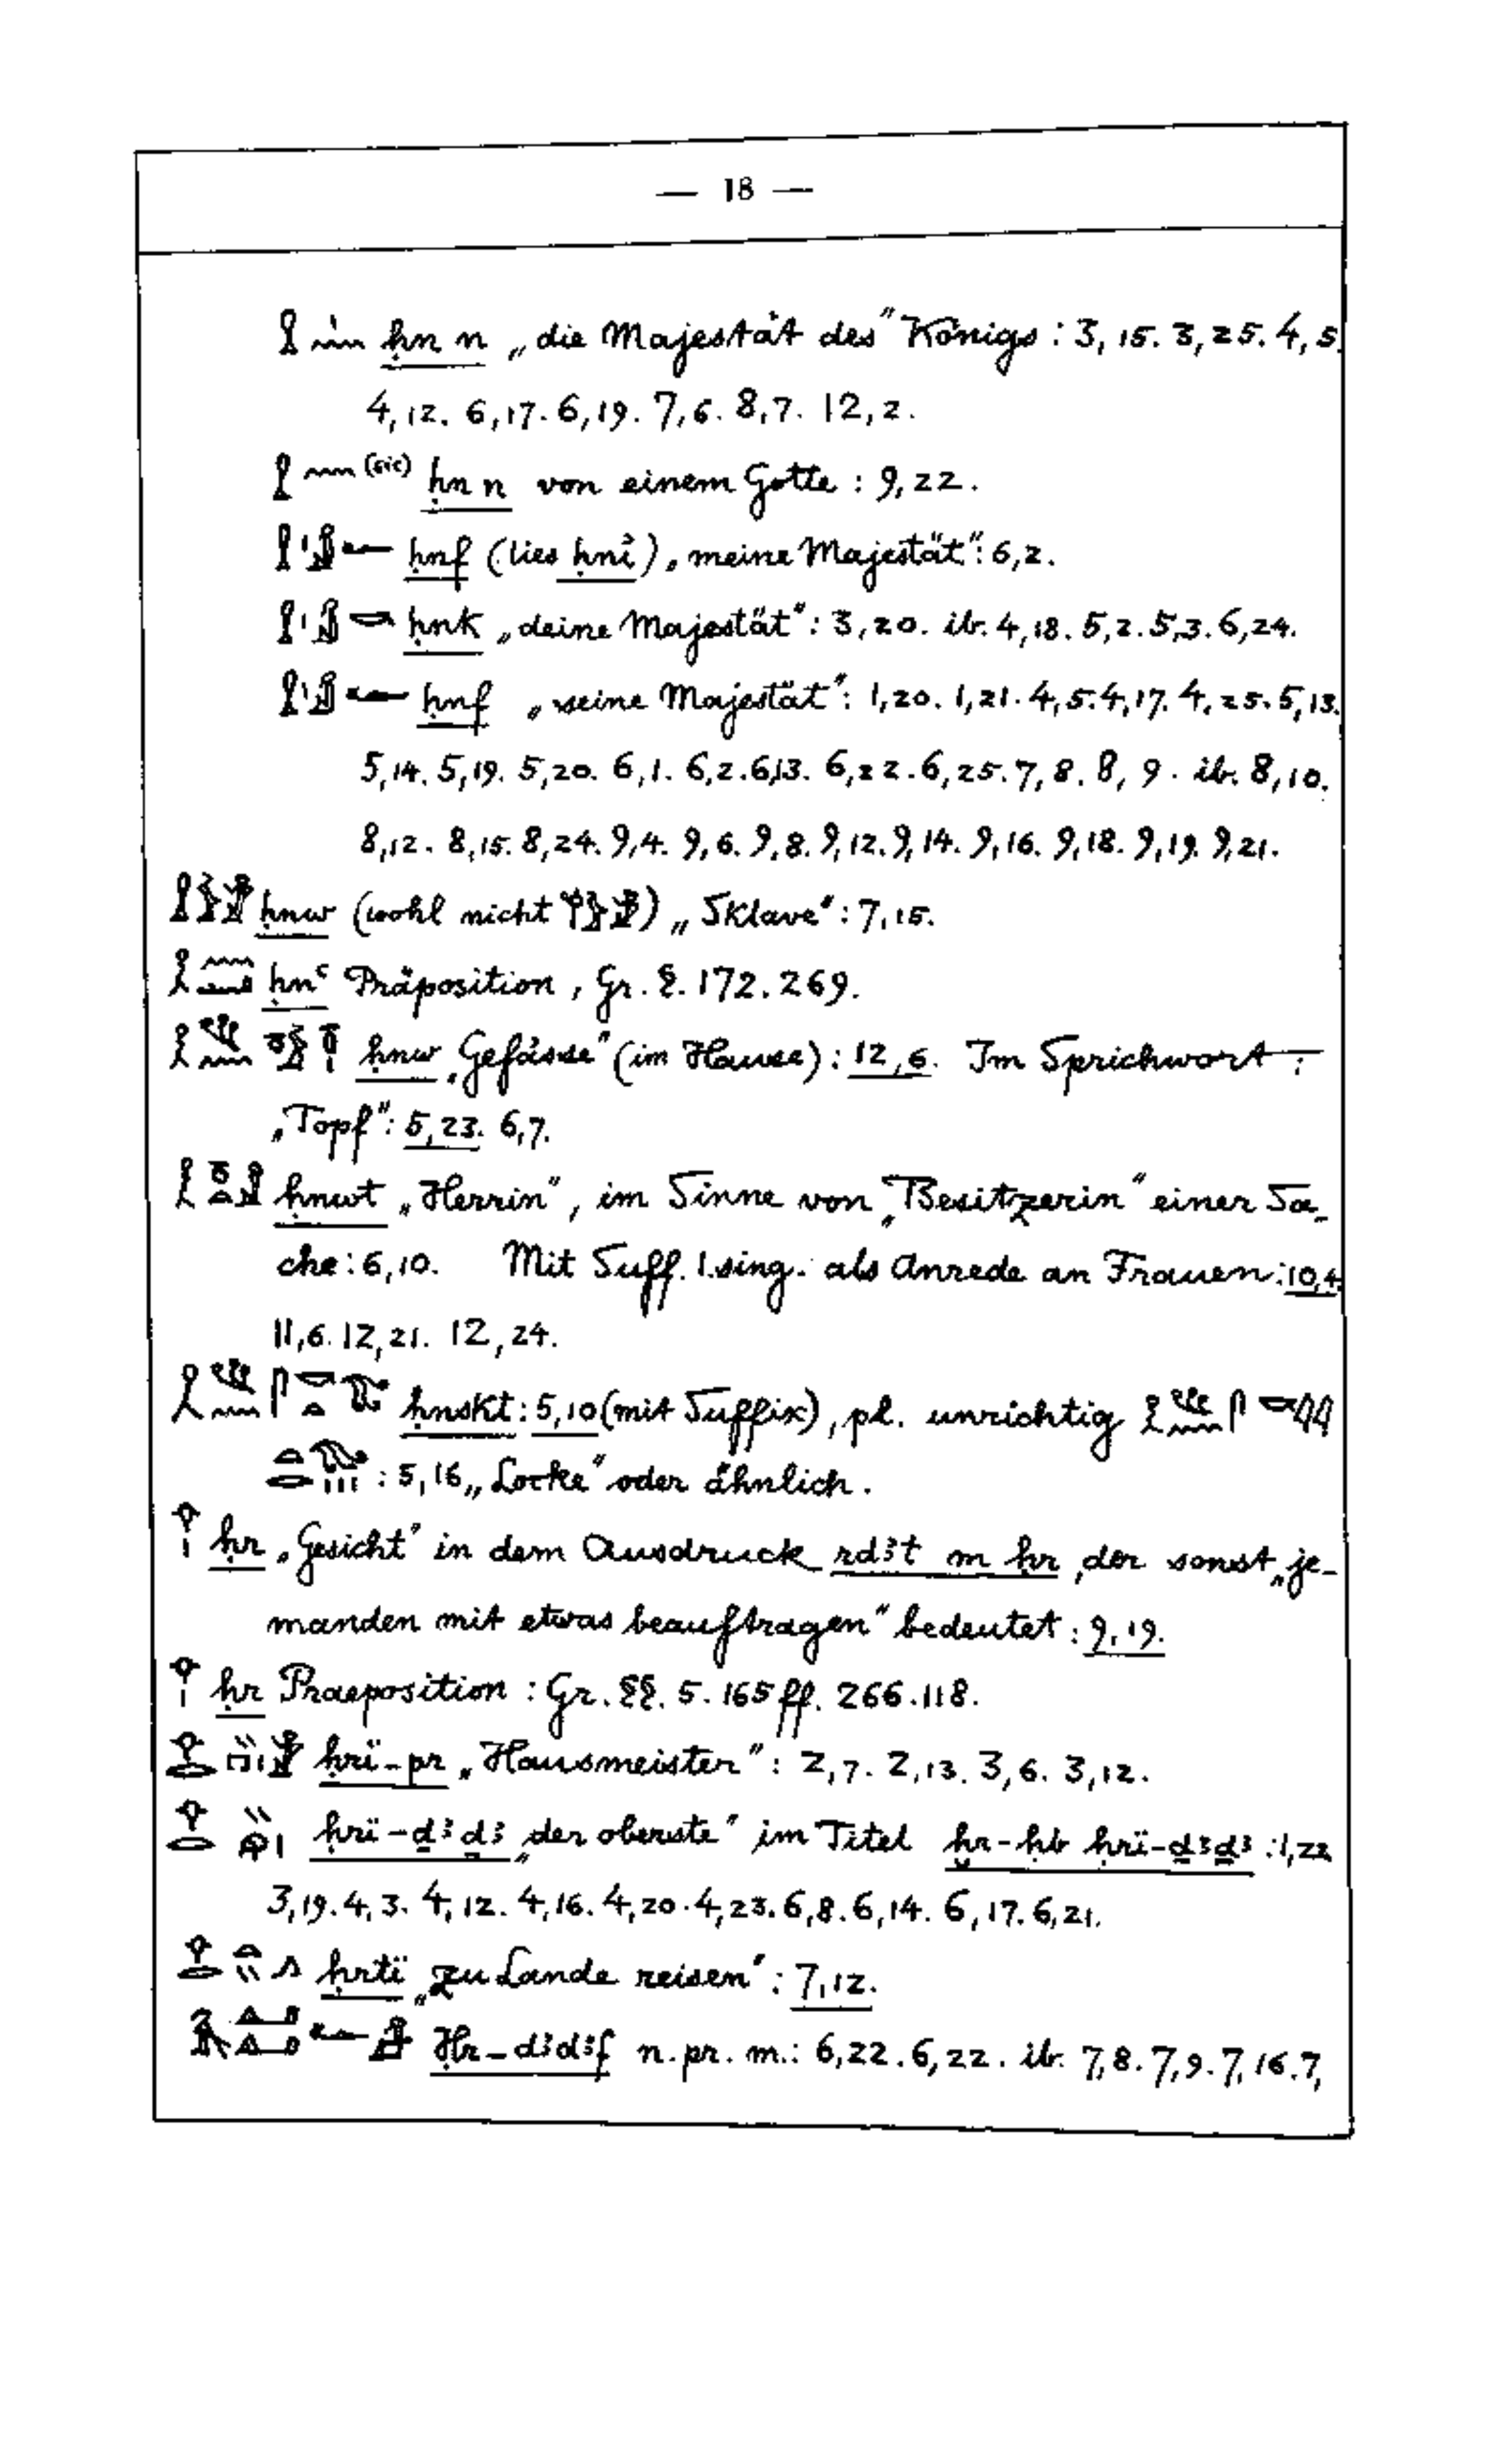 — 18 —
ḥn n „die Majestät des" Königs : 3, 15. 3, 25. 4, 5.
4, 12. 6, 17. 6, 19. 7, 6. 8, 7. 12, 2.
(sic) ḥn n von einem Gotte : 9, 22.
ḥnf (lies ḥnî) „meine Majestät": 6, 2.
ḥnk „deine Majestät": 3, 20. ib. 4, 18. 5, 2. 5, 3. 6, 24.
ḥnf „seine Majestät": 1, 20. 1, 21. 4, 5. 4, 17. 4, 25. 5, 13.
5, 14. 5, 19. 5, 20. 6, 1. 6, 2. 6, 13. 6, 22. 6, 25. 7, 8. 8, 9. ib. 8, 10.
8, 12. 8, 15. 8, 24. 9, 4. 9, 6. 9, 8. 9, 12. 9, 14. 9, 16. 9, 18. 9, 19. 9, 21.
ḥnw (wohl nicht ) „Sklave": 7, 15.
ḥnꜥ Präposition, Gr. §. 172. 269.
ḥnw „Gefässe" (im Hause) : 12, 6. Im Sprichwort :
„Topf": 5, 23. 6, 7.
ḥnwt „Herrin", im Sinne von „Besitzerin" einer Sa-
che : 6, 10. Mit Suff. 1. sing. als Anrede an Frauen : 10, 4.
11, 6. 12, 21. 12, 24.
ḥnskt : 5, 10 (mit Suffix), pl. unrichtig
: 5, 16 „Locke" oder ähnlich.
ḥr „Gesicht" in dem Ausdruck rdꜣt m ḥr, der sonst „je-
manden mit etwas beauftragen" bedeutet : 9, 19.
ḥr Praeposition : Gr. §§. 5. 165 ff. 266. 118.
ḥrï-pr „Hausmeister" : 2, 7. 2, 13. 3, 6. 3, 12.
ḥrï-ḏꜣḏꜣ „der oberste" im Titel ẖr-ḥb ḥrï-ḏꜣḏꜣ : 1, 22
3, 19. 4, 3. 4, 12. 4, 16. 4, 20. 4, 23. 6, 8. 6, 14. 6, 17. 6, 21.
ḥrtï „zu Lande reisen" : 7, 12.
Ḥr-dꜣdꜣf n. pr. m. : 6, 22. 6, 22. ib. 7, 8. 7, 9. 7, 16. 7,